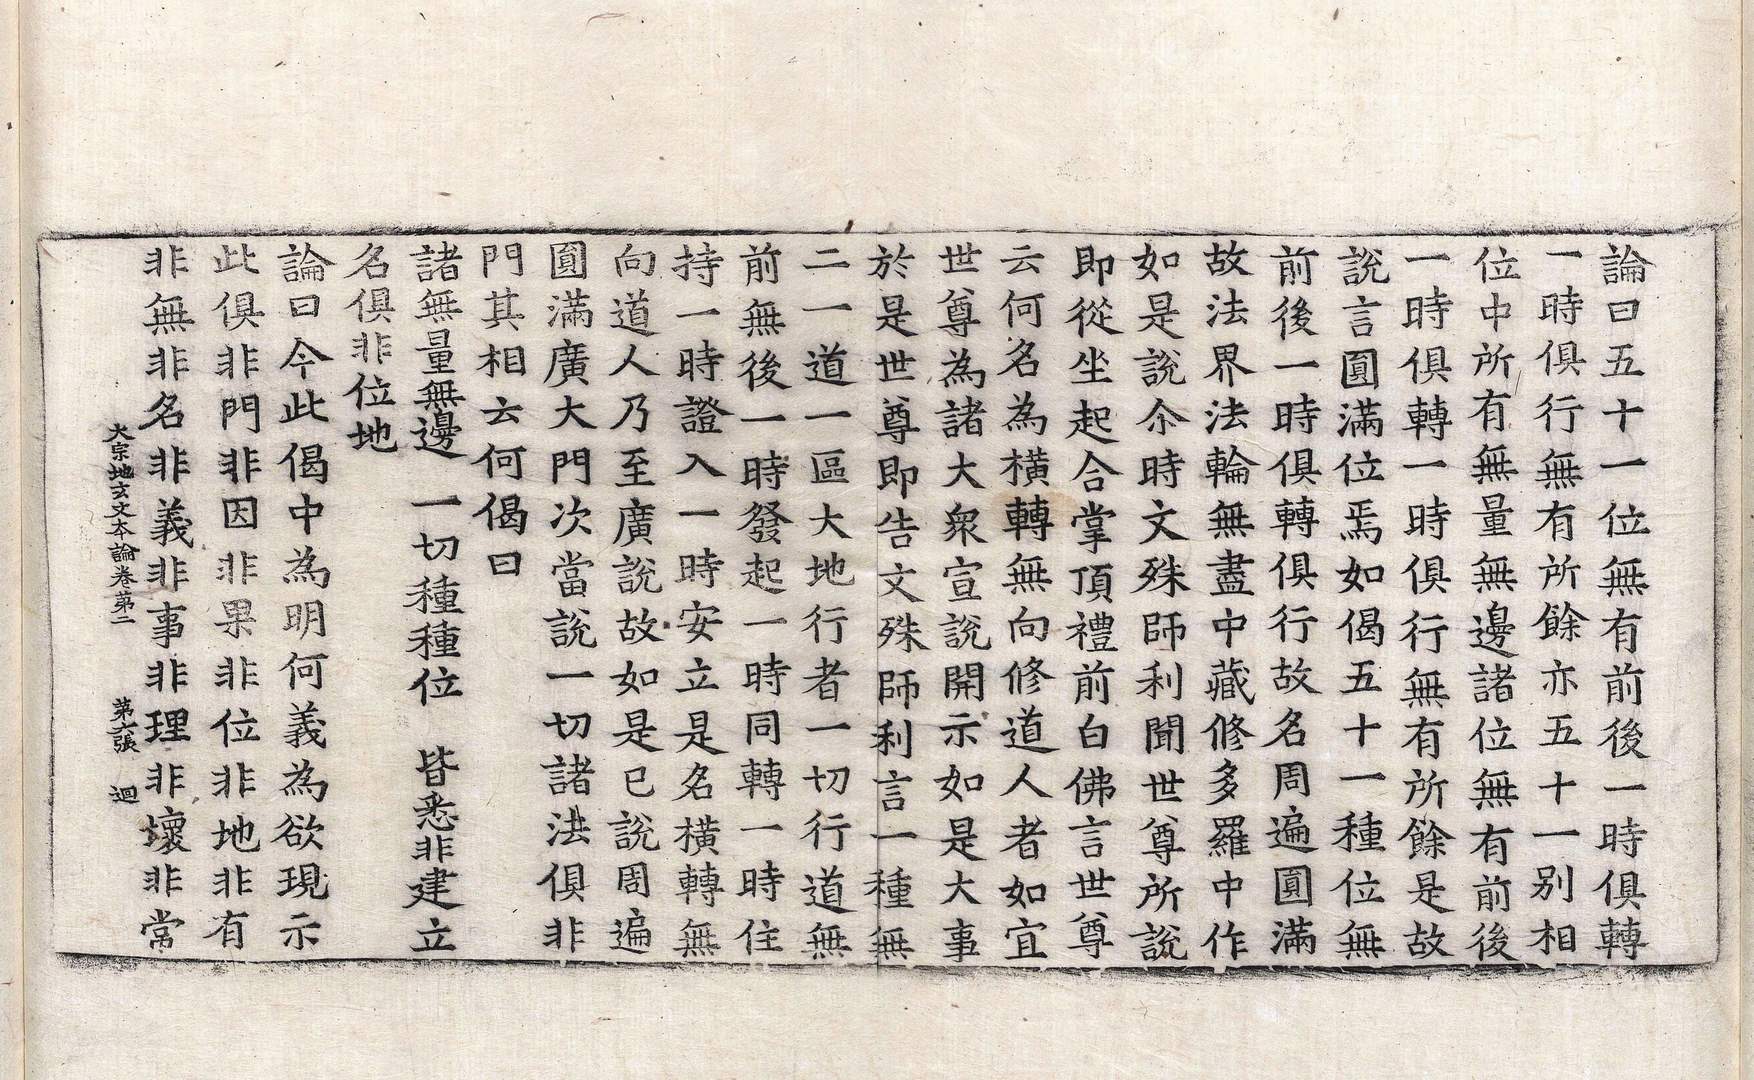 論曰五十一位無有前後一時俱轉
一時俱行無有所餘亦五十一別相
位中所有無量無邊諸位無有前後
一時俱轉一時俱行無有所餘是故
說言圓滿位焉如偈五十一種位無
前後一時俱轉俱行故名周遍圓滿
故法界法輪無盡中藏修多羅中作
如是說尒時文殊師利聞世尊所說
即從坐起合掌頂禮前白佛言世尊
云何名為橫轉無向修道人者如宜
世尊為諸大衆宣說開示如是大事
於是世尊即告文殊師利言一種無
二一道一區大地行者一切行道無
前無後一時發起一時同轉一時住
持一時證入一時安立是名橫轉無
向道人乃至廣說故如是已說周遍
圓滿廣大門次當說一切諸法俱非
門其相云何偈曰
諸無量無邊 一切種種位 皆悉非建立
名俱非位地
論曰今此偈中為明何義為欲現示
此俱非門非因非果非位非地非有
非無非名非義非事非理非壞非常
大宗地玄文本論卷第二 第六張 迴